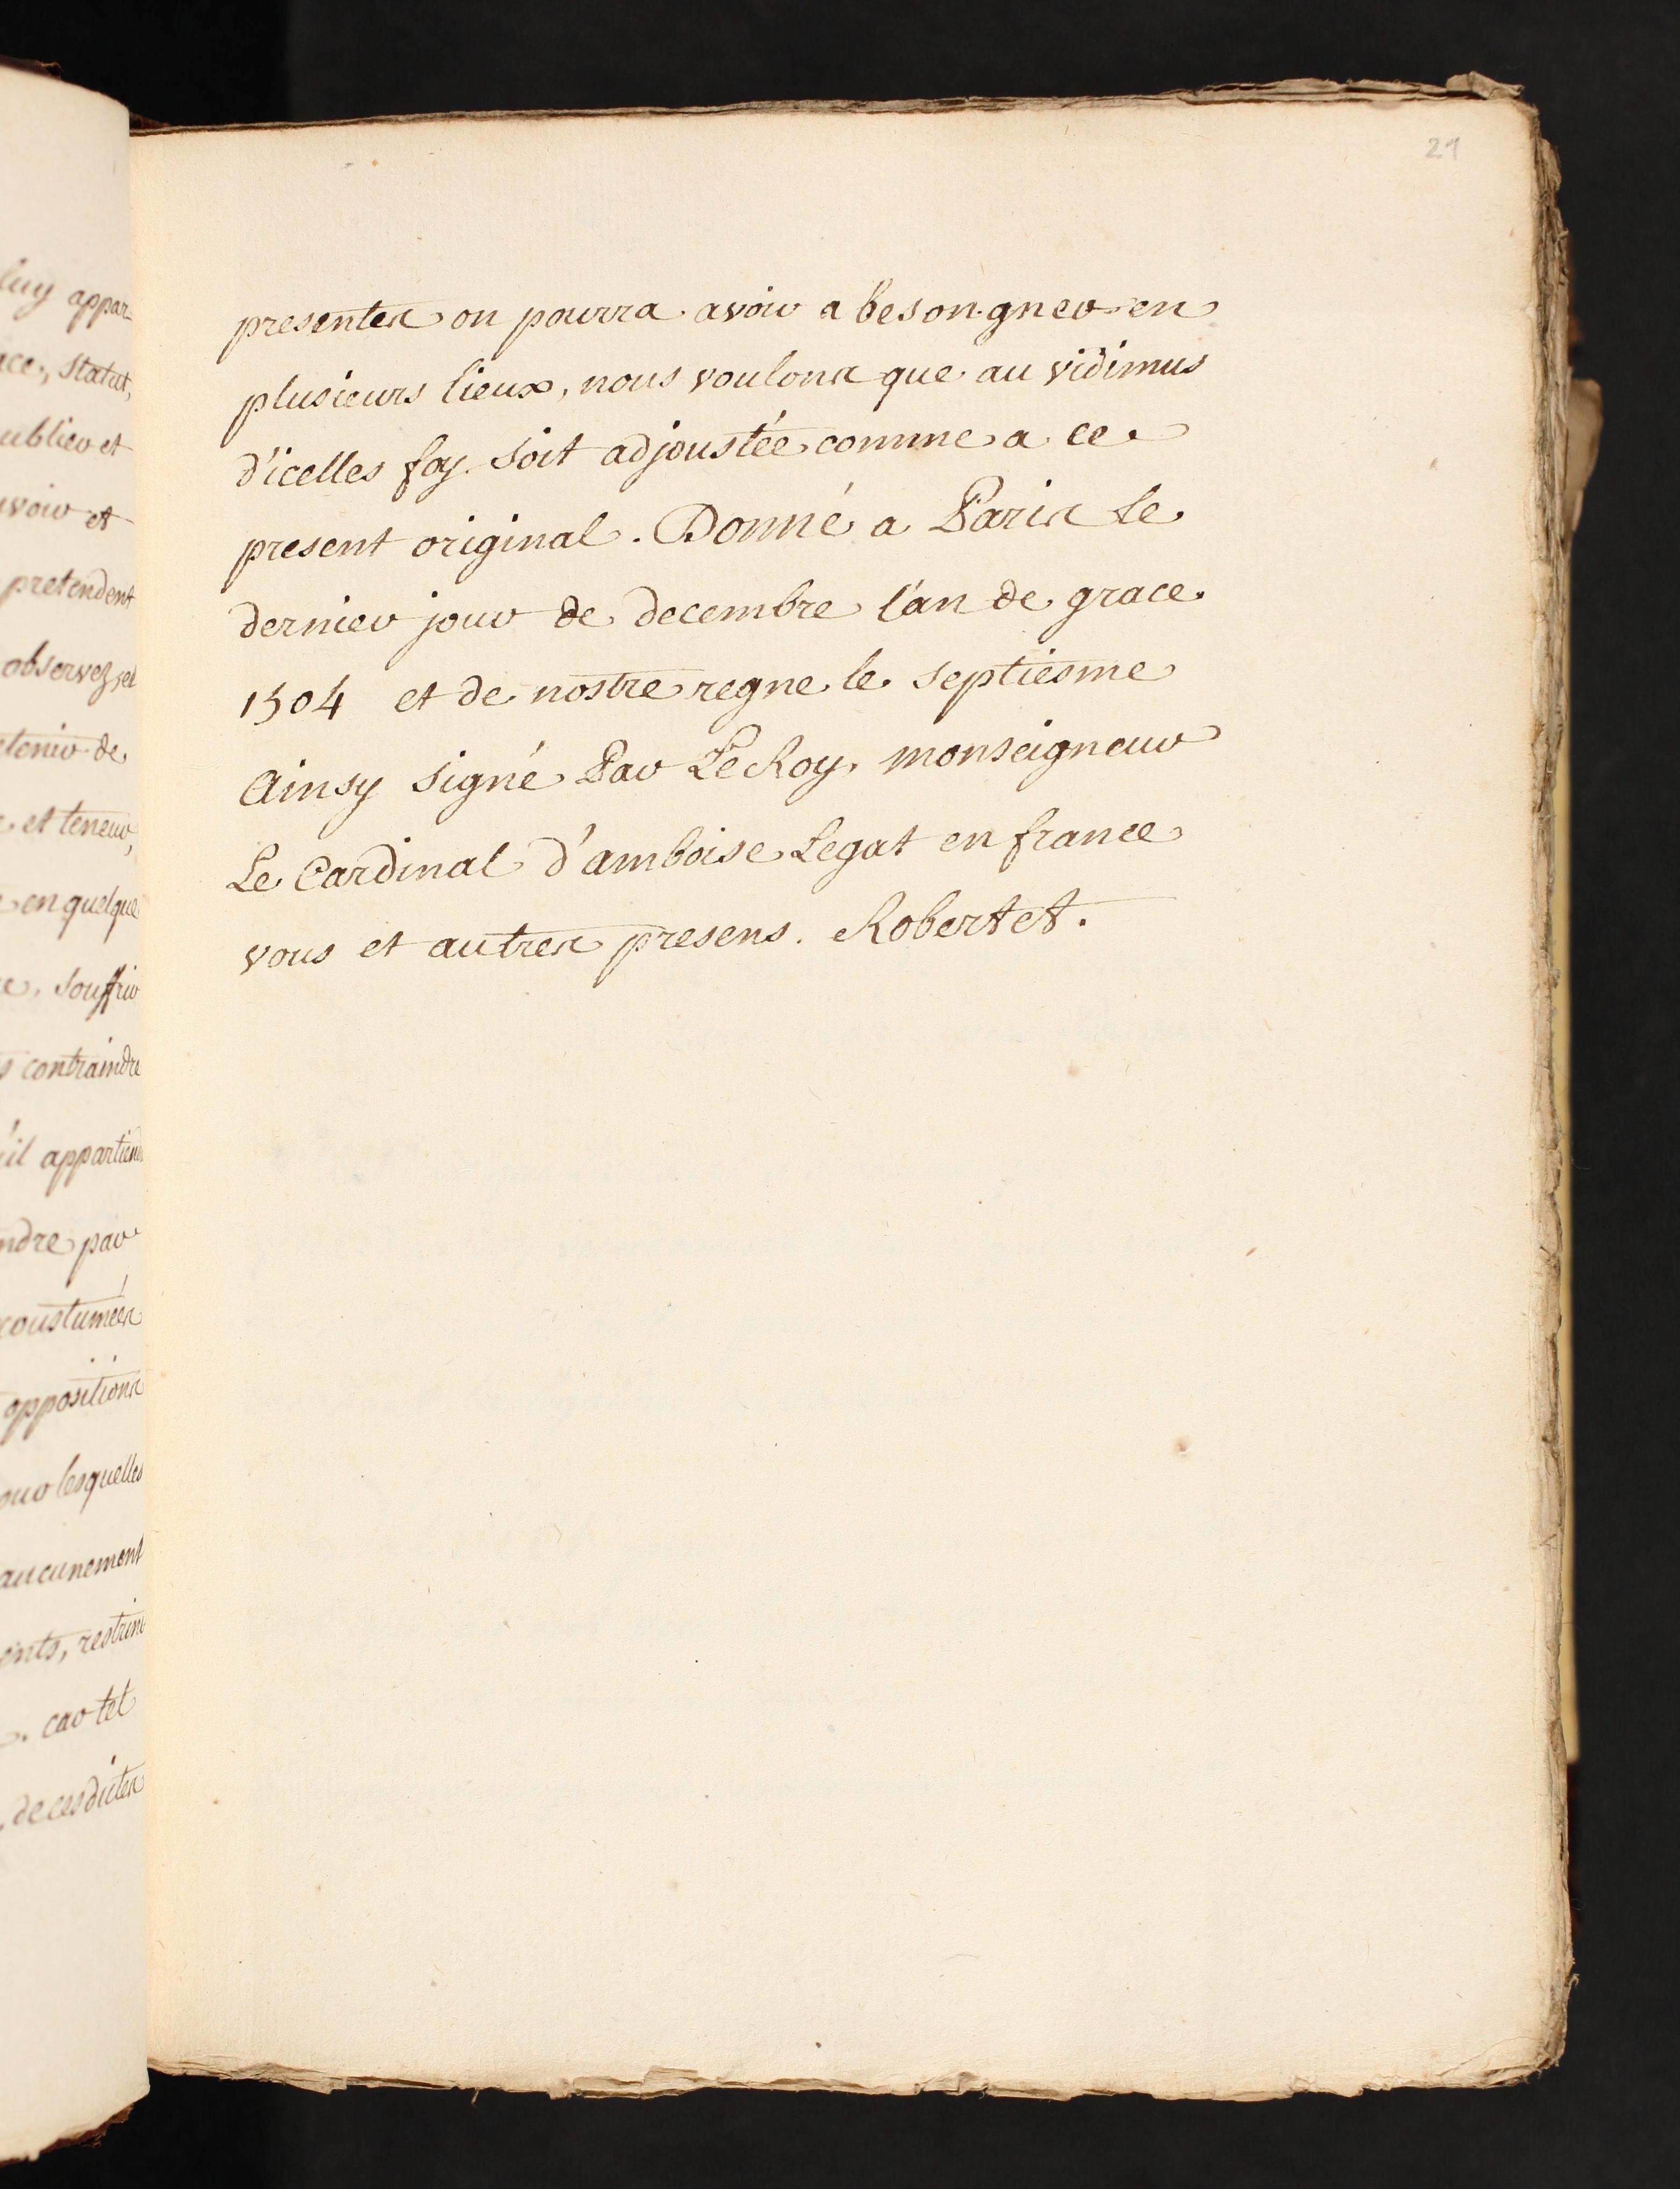 21
presentes on pourra avoir a besongner en
plusieurs lieux, nous voulons que au vidimus
d'icelles foy soit adjoustée comme a ce
present original. Donné a Paris le
dernier jour de decembre l'an de grace
1504 et de nostre regne le septiesme
Ainsy signé Par Le Roy, monseigneur
Le Cardinal d'amboise Legat en france
vous et autres presens. Robertet.
luy appar
statut,
ublier et
voir et
pretendent
observez, et
tenir de
et teneur,
en quelque
souffrir
contraindre
il appartiend
ndre par
coustumées
oppositions
our lesquelles
aucunement
ents, restrinc
car tel
de cesdictes